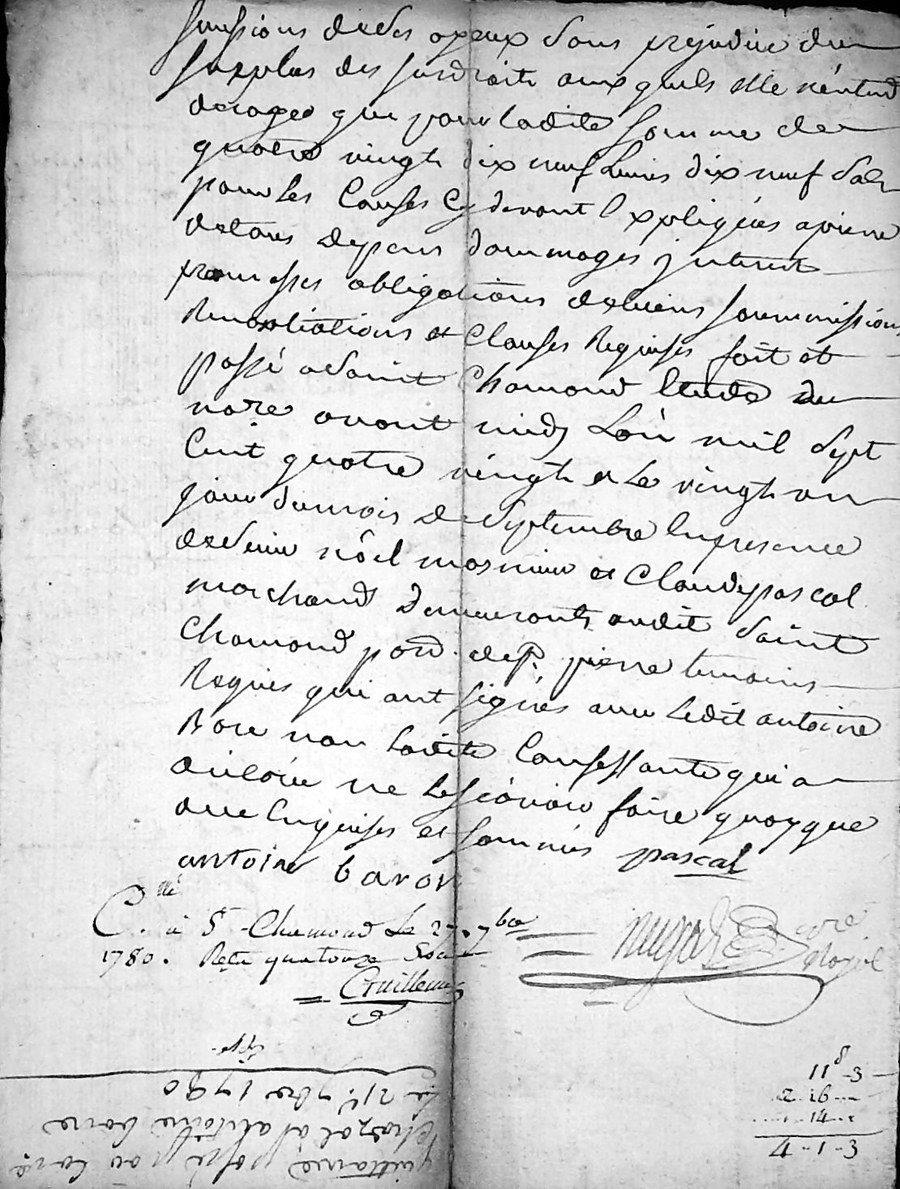 sans préjudice du
surplus des susdroits auxquels elle n'entend
déroger que pour ladite somme de
quatre vingt dix neuf livres dix neuf sols
pour les causes cy devant expliquées a peine
de tous depens dommages interest
promesses obligations de biens soummissions
Renontiations et Clauses Requises fait et
passé a Saint Chamond Etude du
nore avant midy L'an mil sept
Cent quatre vingt et le vingt un
jour du mois de Septembre En presence
de Sieur nöel et Claude pascal
marchands demeurants audit Saint
Chamond paroisse St pierre temoins
Requis qui ont signés avec Ledit antoine
Bore non Ladite Confessante qui a
déclaré ne le sçavoir faire quoyque
de ce Enquises et sommés pascal
antoine baron
C.tllé à St Chamond Le 27. 7bre
1780. Reçu quatorze Sols
notre
Royal
11s - 3
2 - 16 -
14 -
4 - 1 - 3
Le 21e 7bre 1780
a antoine bore
quittance passé par